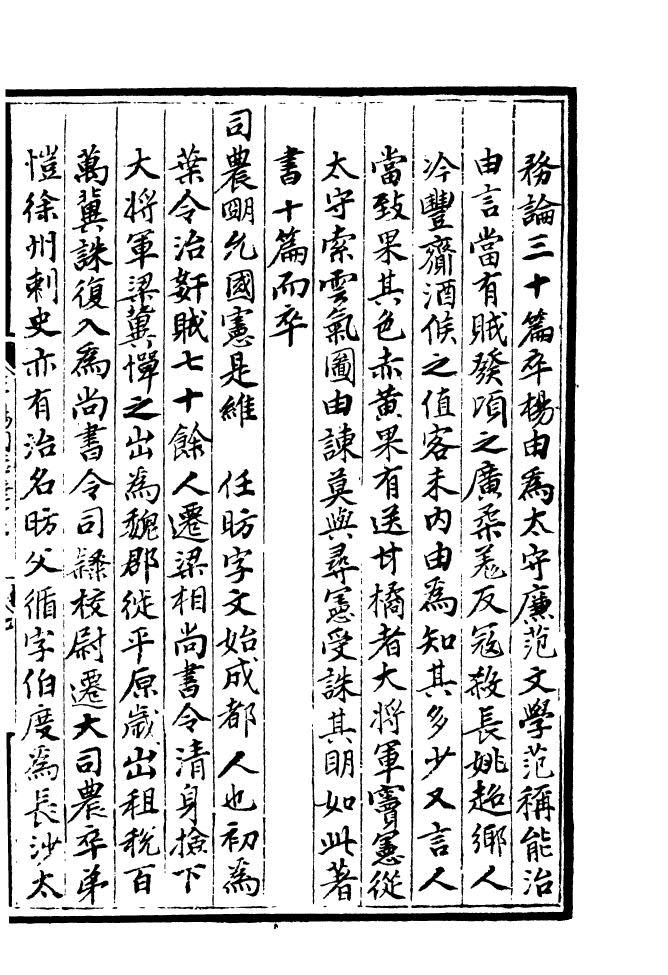 務論三十篇卒楊由為太守廉范文學范稱能治
由言當有賊發項之廣柔羌反寇殺長姚超鄉人
冷豐齎酒候之值客未內由為知其多少又言人
當致果其色赤黄果有送甘橘者大将軍竇憲從
太守索雲氣圖由諫莫與尋憲受誅其明如此著
書十篇而卒
司農明允國憲是維　任昉字文始成都人也初為
葉令治奸賊七十餘人遷梁相尚書令清身撿下
大将軍梁冀憚之出為魏郡徙平原歲出租稅百
萬冀誅復入為尚書令司隸校尉遷大司農卒弟
愷徐州刺史亦有治名昉父循字伯度為長沙太